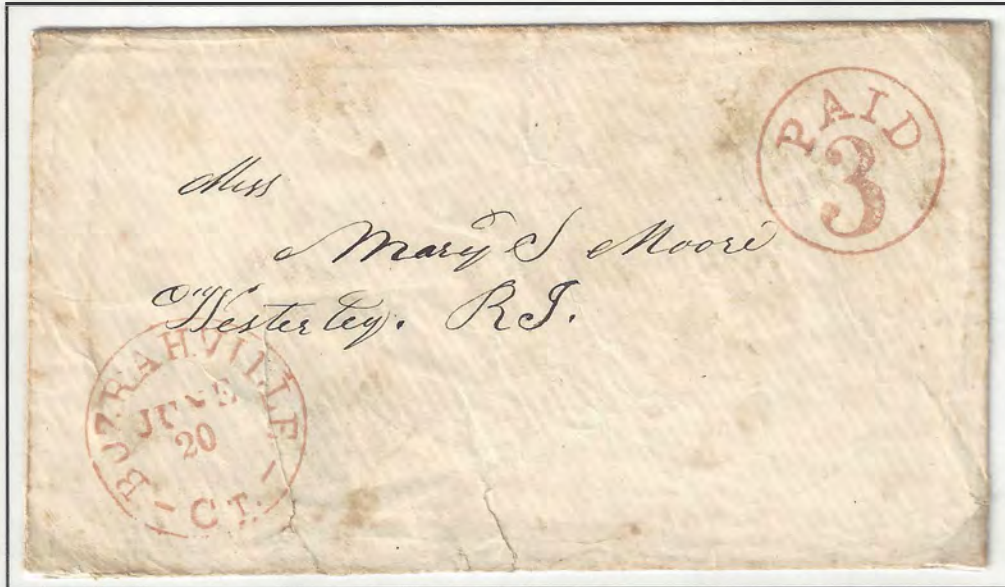 PAID
3
Miss
Mary S Moore
Westerley. R.I.
BOZRAHVILLE
JUNE
20
CT.